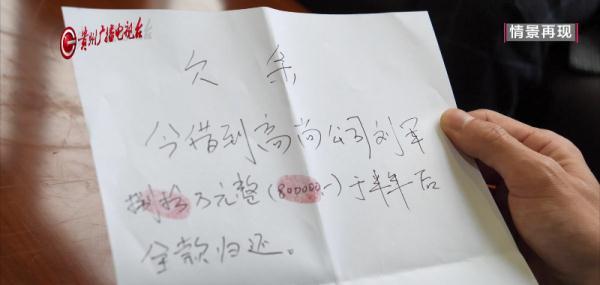 贵州广播电视台
情景再现
欠条
今借到高尚公司刘军
捌拾万元整(800000-)于半年后
全款归还。